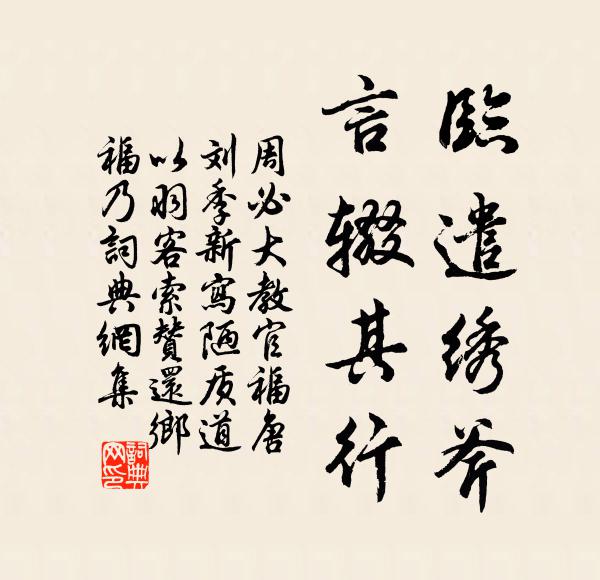 臨遣绣斧
言辍其行
周必大教官福唐
刘季新寫陋质道
以羽客索贊還鄉
福乃詞典網集
詞典网印